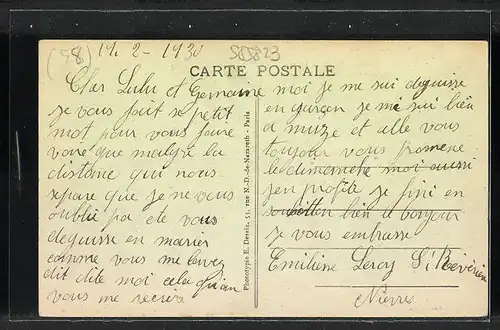 (58)
14. 2 - 1930
585823
CARTE POSTALE
Cher Lulu et Germaine
je vous fait se petit
mot pour vous faire
voire que malgre la
distance qui nous
separe que je ne vous
oublie pa ete vous
deguisse en marier
comme vous me
dit dite moi cela quan
vous me
moi je me sui deguisse
en garçon je me sui bien
a muze et alle vous
toujour vous promene
le dimanche moi aussi
jen profite je fini en
bien le bonjour
je vous embrasse
Emiliene Leroy St Reverien
Nievre
Phototypie E. Desaix, 51, rue N.-D.-de-Nazareth - Paris